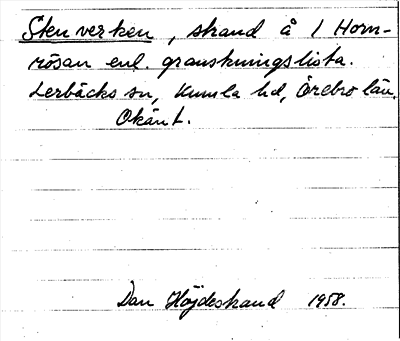 Stenverken, strand å 1 Horn-
rösan enl. granskningslista.
Lerbäcks sn, Kumla hd, Örebro län.
Okänt.
Dan Höjdestrand 1958.